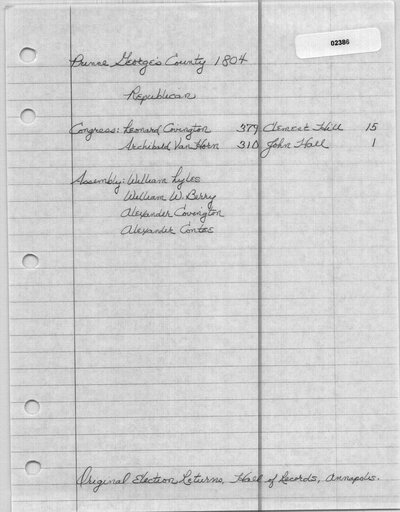 02386
Prince George's County 1804
Republican
Congress: Leonard Covington 379 Clement Hill 15
Archibald Van Horn 310 John Hall 1
Assembly: William Lyles
William W. Berry
Alexander Covington
Alexander Contee
Original Election Returns, Hall of Records, Annapolis.